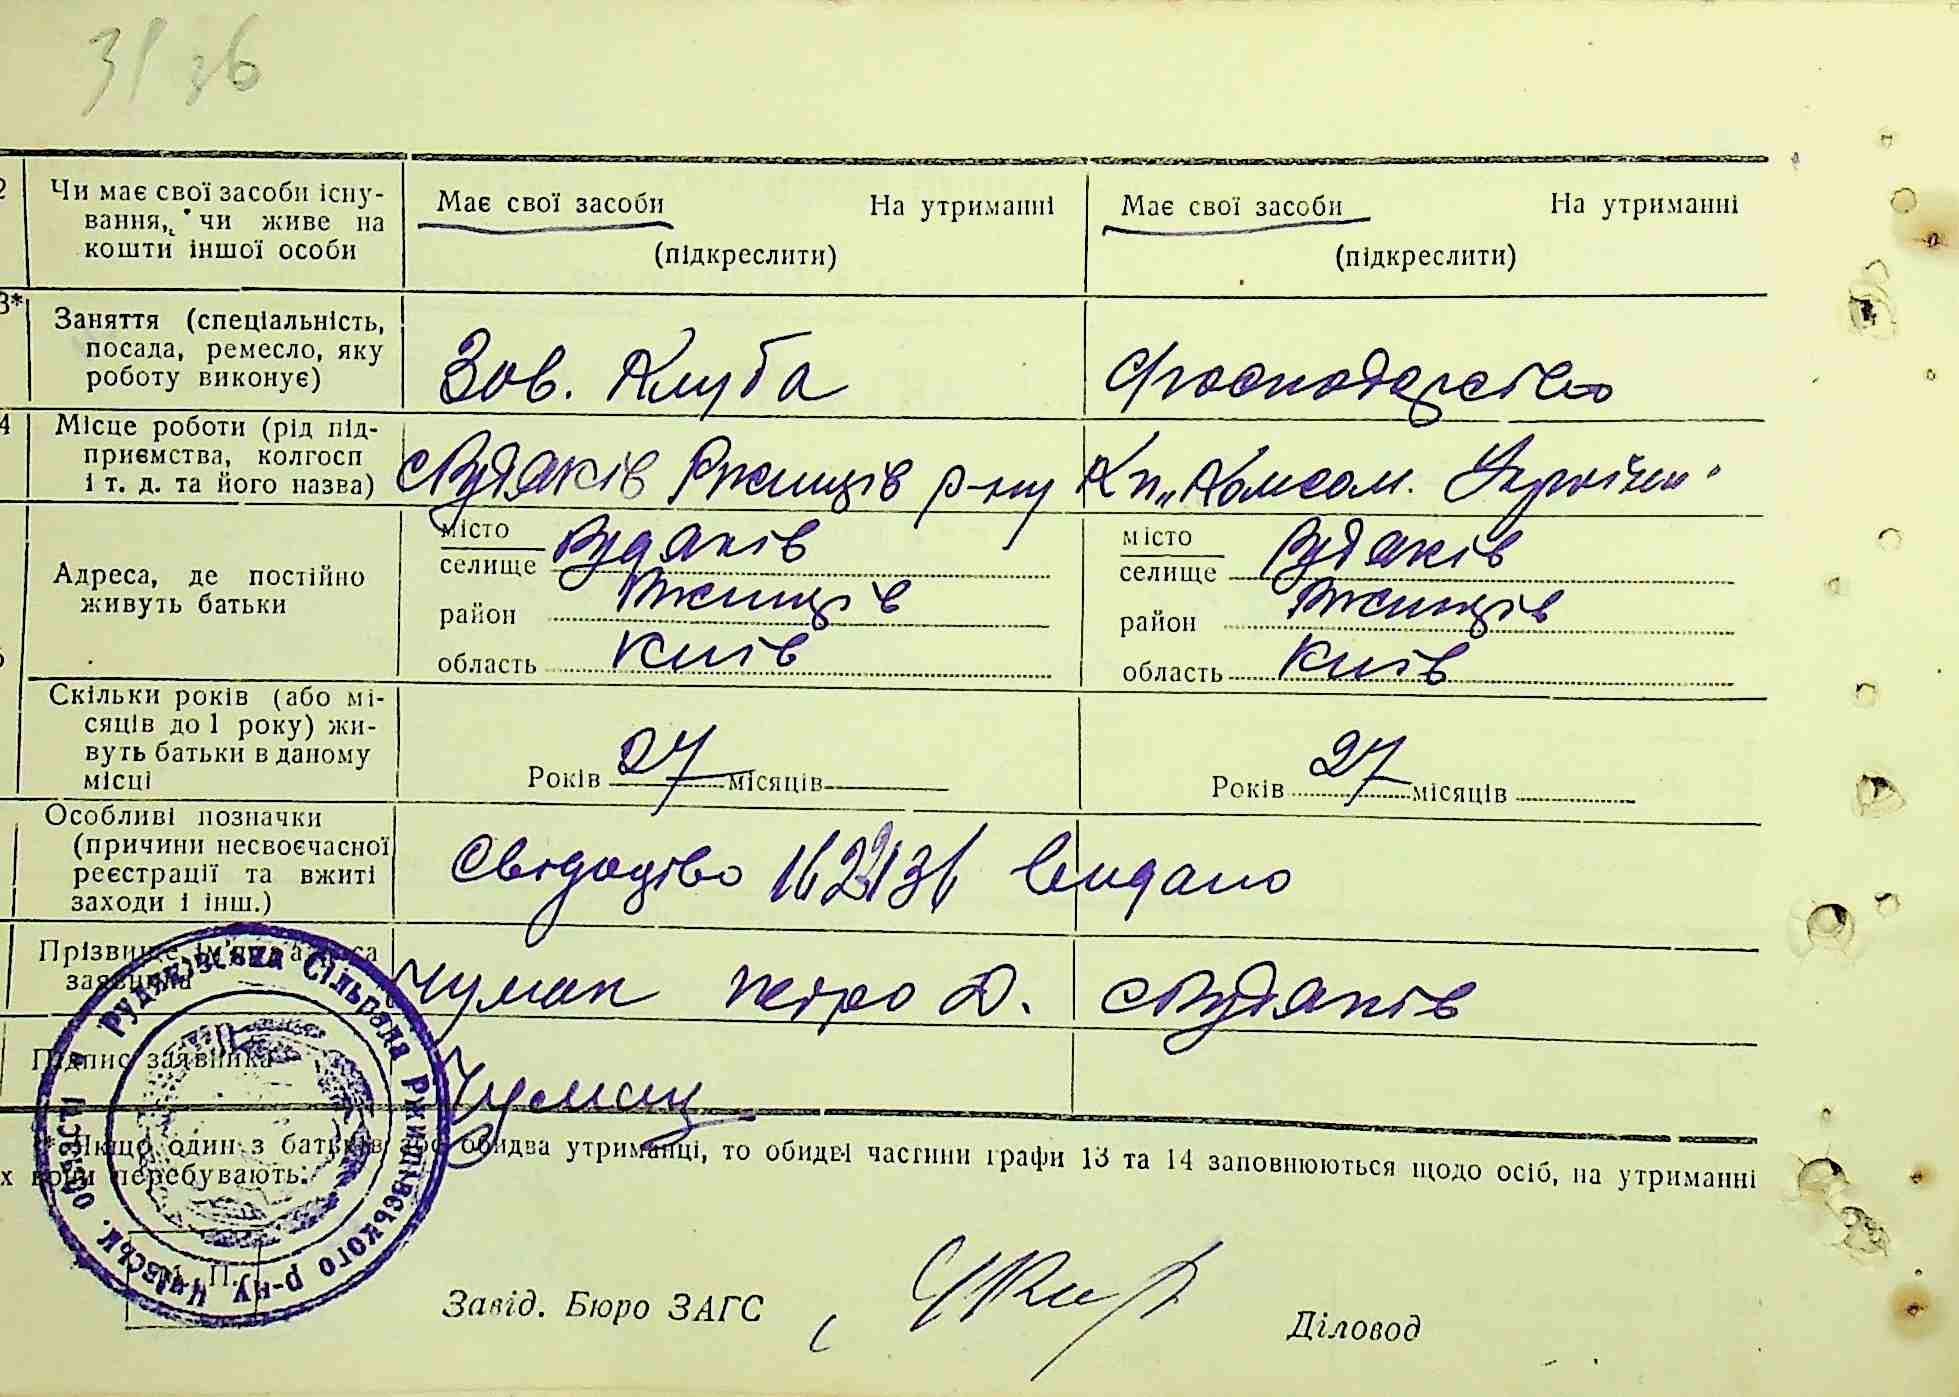 31 зб
2 Чи має свої засоби існу-
вання, чи живе на
кошти іншої особи
Має свої засоби На утриманні
(підкреслити)
Має свої засоби На утриманні
(підкреслити)
3* Заняття (спеціальність,
посада, ремесло, яку
роботу виконує)
Зов. Клуба
господарство
4 Місце роботи (рід під-
приємства, колгосп
і т. д. та його назва)
с Рудяків Ржищів р-ну
Кп „Комсом. України"
Адреса, де постійно
живуть батьки
місто
селище Рудяків
район Ржищів
область Київ
місто
селище Рудяків
район Ржищів
область Київ
Скільки років (або мі-
сяців до 1 року) жи-
вуть батьки в даному
місці
Років 27 місяців
Років 27 місяців
Особливі позначки
(причини несвоєчасної
реєстрації та вжиті
заходи і інш.)
Свідоцтво видано
Прізвище, ім'я та адреса
заявника
Чумак Петро Д. с Рудяків
Підпис заявника
Чумак
* Якщо один з батьків або обидва утриманці, то обидві частини графи 13 та 14 заповнюються щодо осіб, на утриманні
х вони перебувають.
Рудяківська Сільрада Ржищівського р-ну, Київськ. області
М. П.
Завід. Бюро ЗАГС
Діловод